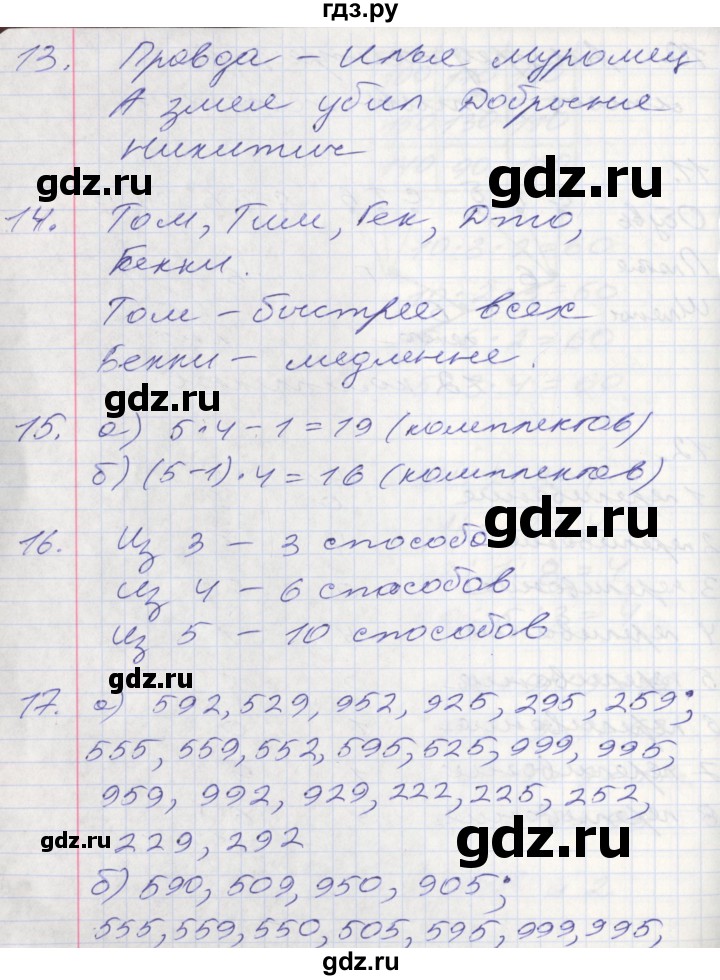 гдз.ру
13. Правда – Илья Муромец
А змея убил Добрыня
Никитич
gdz.ru gdz.ru
14. Том, Тим, Гек, Джо,
Бекки.
Том – быстрее всех
Бекки – медленне.
gdz.ru gdz.ru
15. а) 5·4 – 1 = 19 (комплектов)
б) (5-1)·4 = 16 (комплектов)
gdz.ru
16. Из 3 – 3 способо
Из 4 – 6 способов
Из 5 – 10 способов
gdz.ru
17. а) 592, 529, 952, 925, 295, 259;
555, 559, 552, 595, 525, 999, 995,
959, 992, 929, 222, 225, 252,
229, 292
gdz.ru gdz.ru
б) 590, 509, 950, 905;
555, 559, 550, 505, 595, 999, 995,
gdz.ru gdz.ru